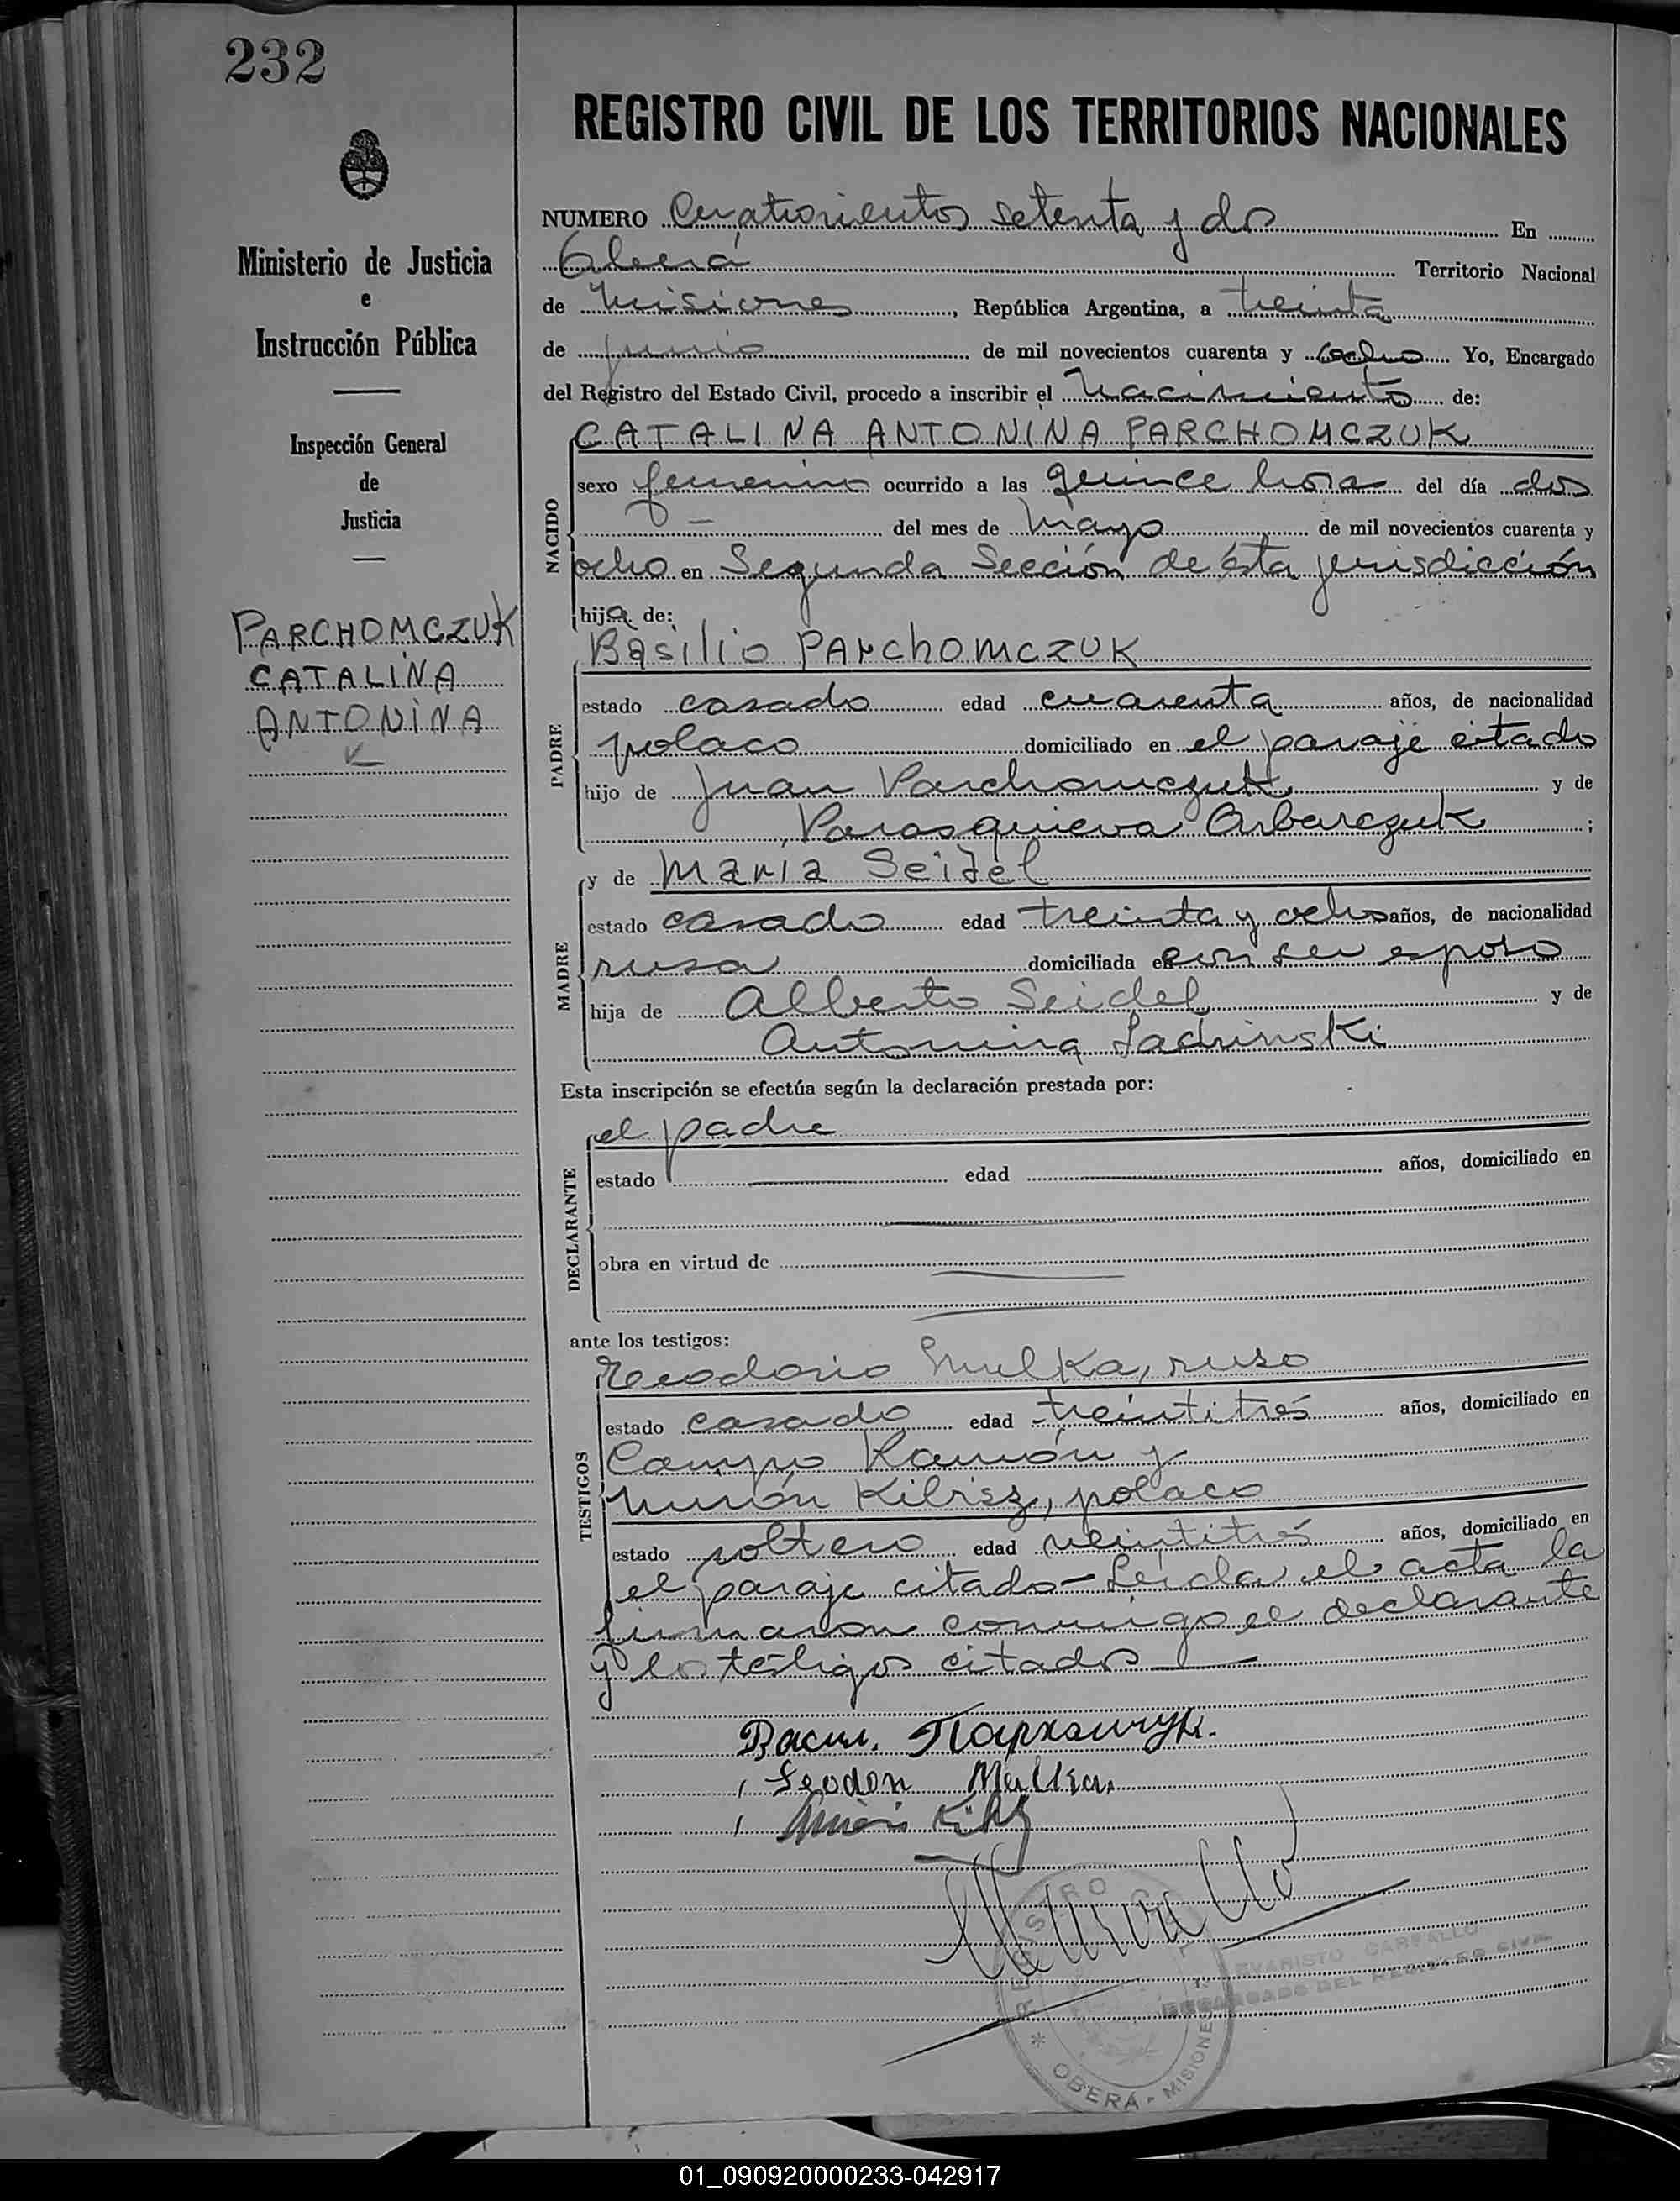 232
Ministerio de Justicia
e
Instrucción Pública
Inspección General
de
Justicia
PARCHOMCZUK
CATALINA
ANTONINA
REGISTRO CIVIL DE LOS TERRITORIOS NACIONALES
NUMERO Cuatrocientos setenta y dos En
Oberá Territorio Nacional
de Misiones, República Argentina, a treinta
de junio de mil novecientos cuarenta y ocho Yo, Encargado
del Registro del Estado Civil, procedo a inscribir el Nacimiento de:
NACIDO
CATALINA ANTONINA PARCHOMCZUK
sexo femenino ocurrido a las quince hora del día dos
del mes de Mayo de mil novecientos cuarenta y
ocho en Segunda Sección de ésta jurisdicción
hija de:
PADRE
Basilio PArchomczuk
estado casado edad cuarenta años, de nacionalidad
polaco domiciliado en el paraje citado
hijo de Juan Parchomczuk y de
Parasquieva Arbarczuk;
MADRE
y de Maria Seidel
estado casado edad treinta y ocho años, de nacionalidad
rusa domiciliada en con su esposo
hija de Alberto Seidel y de
Antonina Sadrinski
Esta inscripción se efectúa según la declaración prestada por:
DECLARANTE
el padre
estado edad años, domiciliado en
obra en virtud de
ante los testigos:
TESTIGOS
Teodorio Mulka, ruso
estado casado edad treintitrés años, domiciliado en
Campo Ramón y
Kibisz, polaco
estado soltero edad veintitrés años, domiciliado en
el paraje citado - Leída el acta la
firmaron conmigo el declarante
y los testigos citados
Васил. Пархомчук.
Mulka
REGISTRO CIVIL
OBERÁ - MISIONES
EVARISTO CARVALLO
ENCARGADO DEL REGISTRO CIVIL
01_090920000233-042917